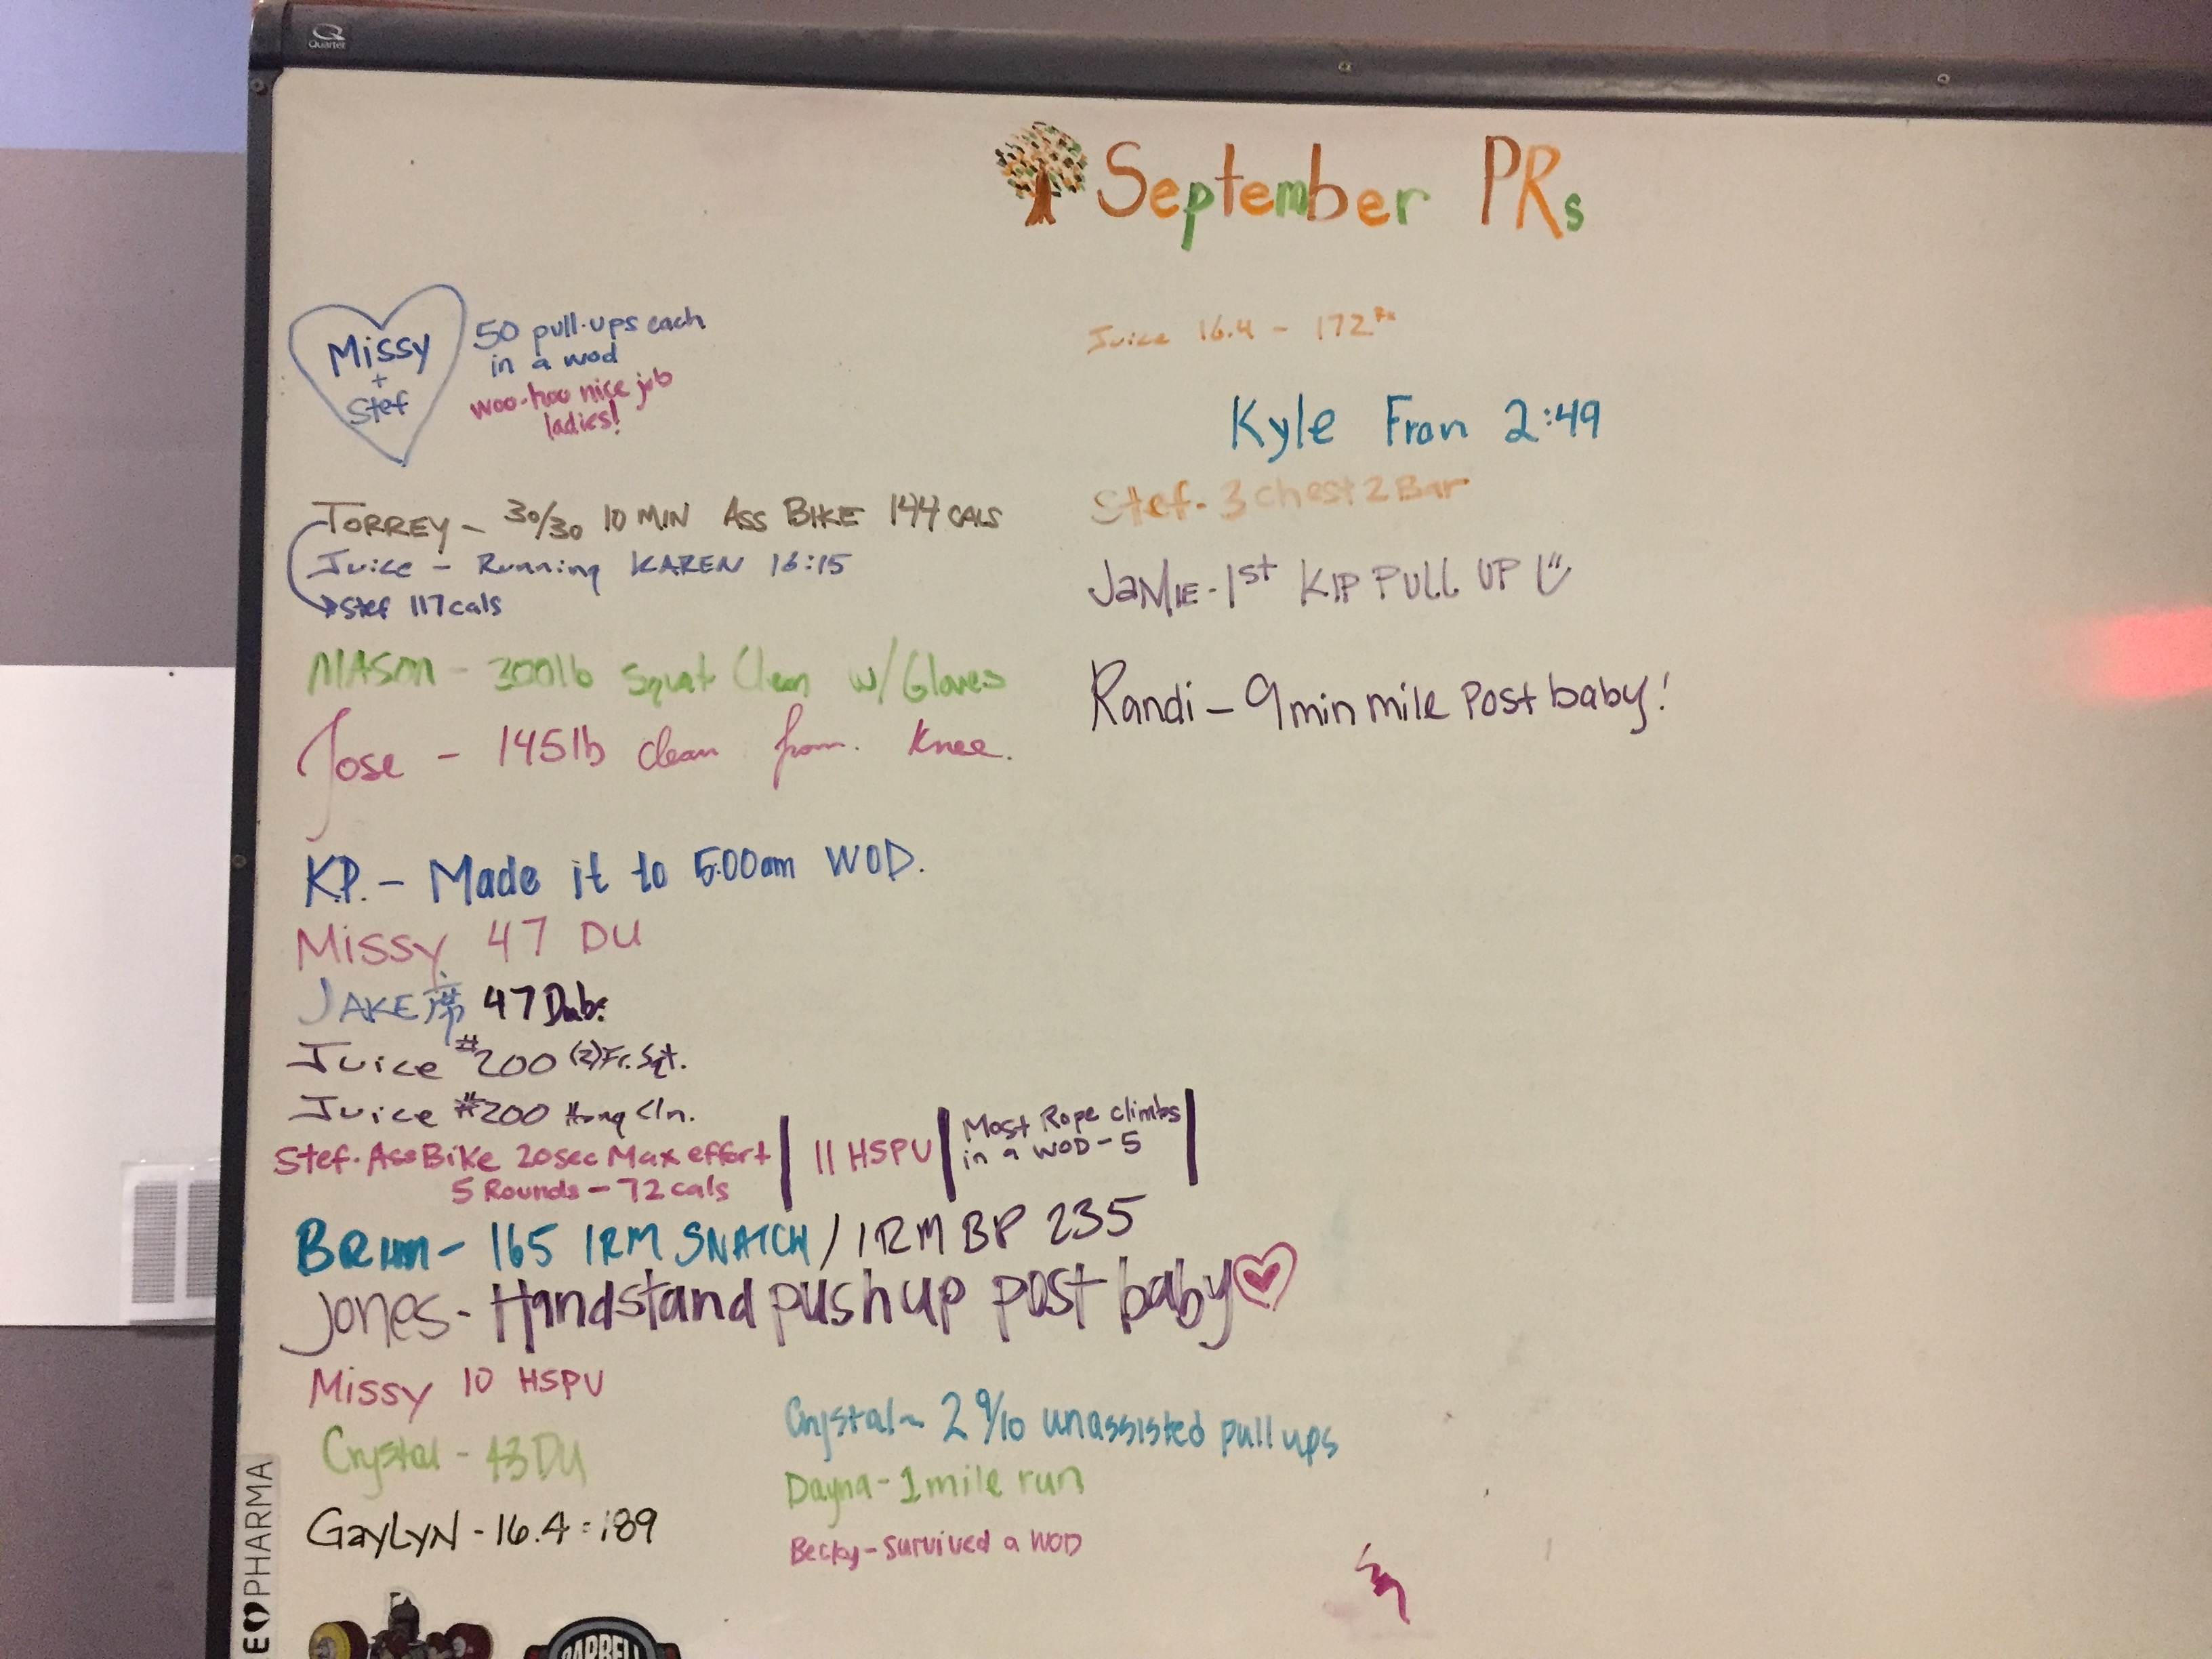 Quarter
September PRs
Missy
+
Stef
50 pull-ups each
in a wod
woo-hoo nice job
ladies!
TORREY - 30/30 10 MIN ASS BIKE 144 CALS
Juice - Running KAREN 16:15
Stef 117 cals
MASON - 300lb Squat Clean w/ Gloves
Jose - 145lb clean from. Knee.
KP. - Made it to 5:00am WOD.
Missy 47 DU
JAKE 47 Dubs
Juice #200 (2) Fr. Sqt.
Juice #200 Hang Cln.
Stef - Ass Bike 20sec Max effort
5 Rounds - 72 cals
11 HSPU
Most Rope climbs
in a WOD - 5
- 165 1RM SNATCH / 1RM BP 235
Jones - Handstand push up post baby
Missy 10 HSPU
Crystal - 43 DU
GayLyN - 16.4 = 189
Crystal ~ 2 9/10 unassisted pull ups
Dayna - 1 mile run
Becky - survived a WOD
Juice 16.4 - 172 Rx
Kyle Fran 2:49
Stef - 3 chest 2 Bar
JaMIE - 1st KIP PULL UP
Randi - 9 min mile Post baby!
PHARMA
BARBELL